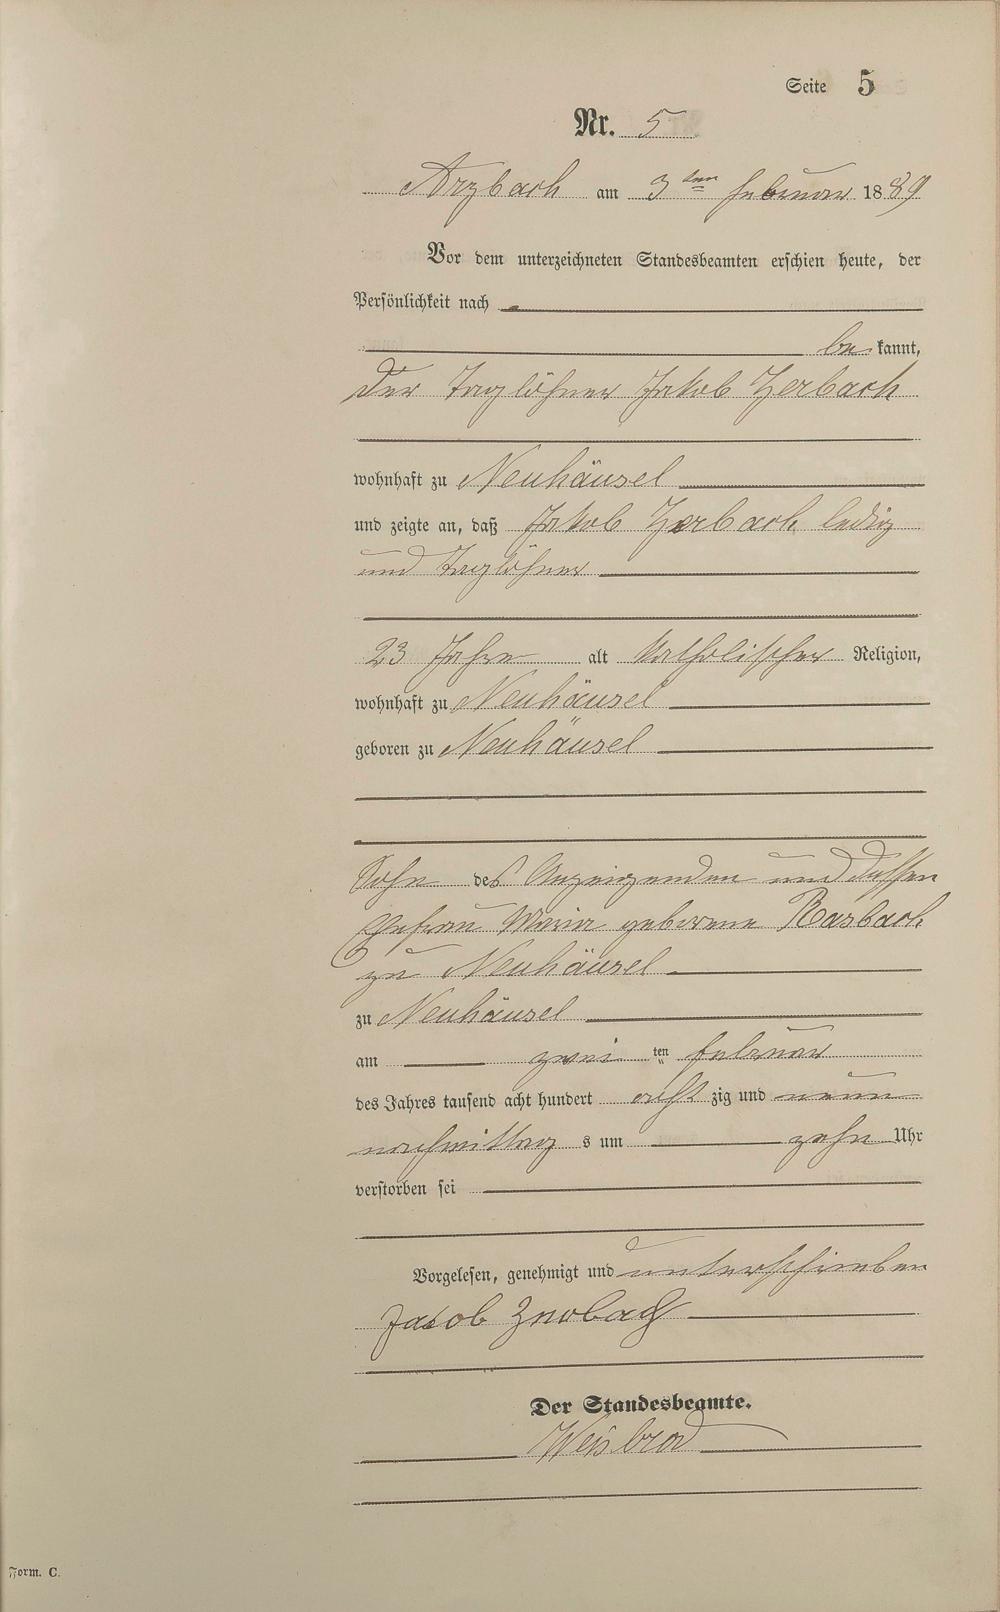 Seite 5
Nr. 5
Arzbach am 3 ten Februar 1889
Vor dem unterzeichneten Standesbeamten erschien heute, der
Persönlichkeit nach
be kannt,
der Taglöhner Jakob Zerbach
wohnhaft zu Neuhäusel
und zeigte an, daß Jakob Zerbach ledig
und Taglöhner
23 Jahre alt katholischer Religion,
wohnhaft zu Neuhäusel
geboren zu Neuhäusel
Sohn des Anzeigenden und dessen
Ehefrau Maria geborene Rasbach
zu Neuhäusel
zu Neuhäusel
am zwei ten Februar
des Jahres tausend acht hundert acht zig und neun
nachmittag s um zehn Uhr
verstorben sei
Vorgelesen, genehmigt und unterschrieben
Jacob Zerbach
Der Standesbeamte.
Weisbrod
Form. C.